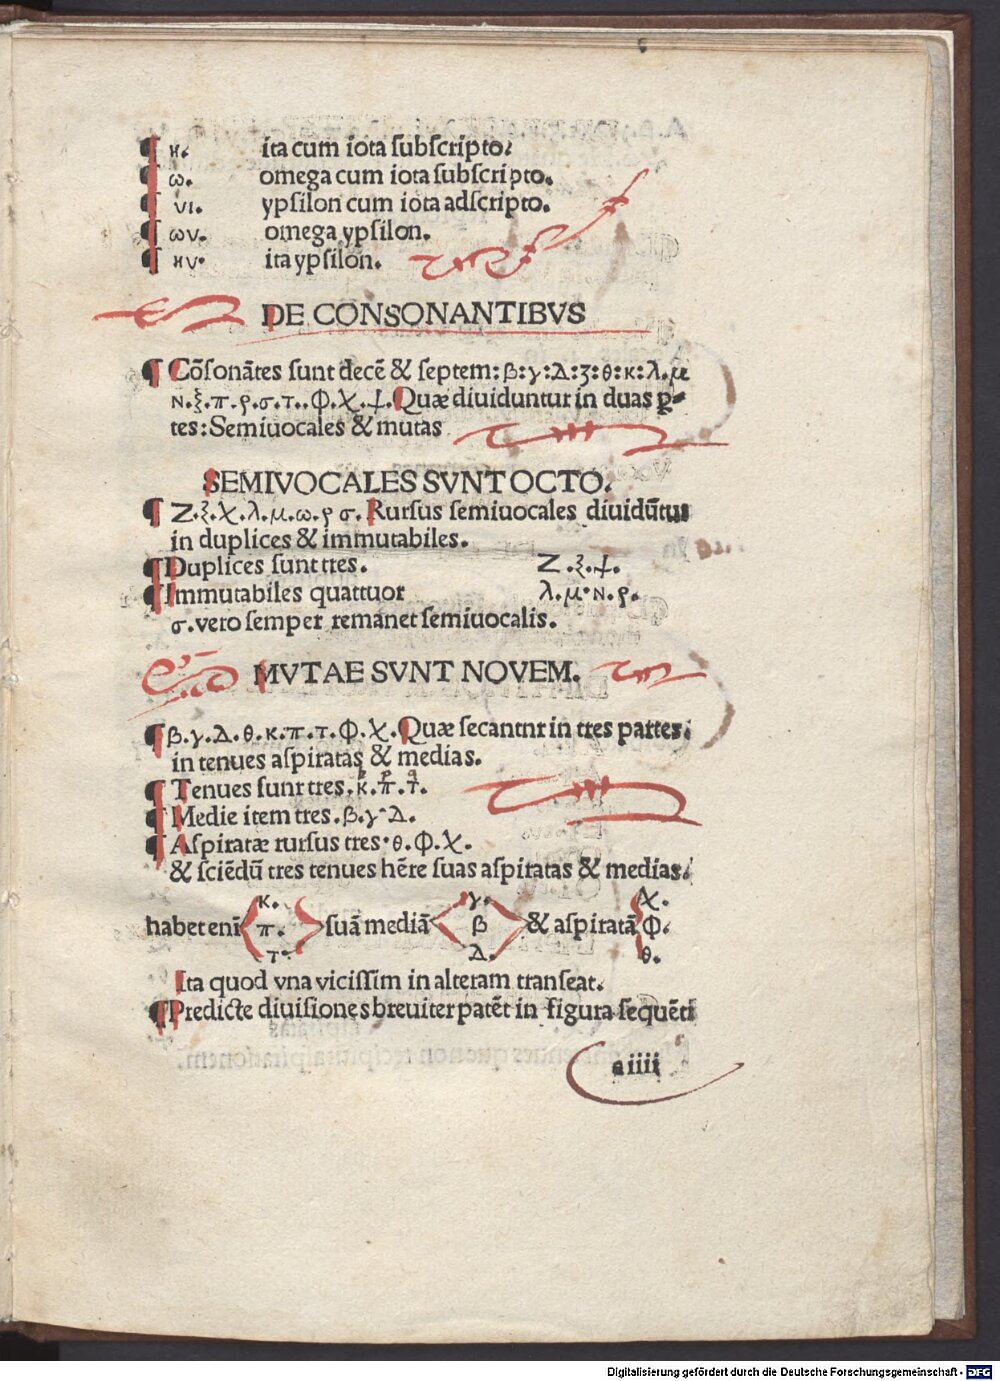 ¶ ꭓ. ita cum iota ſubſcripto.
¶ ω. omega cum iota ſubſcripto.
¶ υι. ypſilon cum iota adſcripto.
¶ ωυ. omega ypſilon.
¶ ηυ. ita ypſilon.
DE CONSONANTIBVS
¶ Cōſonātes ſunt decē & ſeptem: β: γ: Δ: ʒ: θ: κ: λ. μ
ν. ξ. π. ρ. σ. τ.. φ. χ. ϯ. Quæ diuiduntur in duas ꝑ-
tes: Semiuocales & mutas
SEMIVOCALES SVNT OCTO.
¶ Z. ξ. χ. λ. μ. ω. ρ σ. Rurſus ſemiuocales diuidūtur
in duplices & immutabiles.
¶ Duplices ſunt tres. Z. ξ. ϯ.
¶ Immutabiles quattuor λ. μ. ν. ρ.
σ. vero ſemper remanet ſemiuocalis.
MVTAE SVNT NOVEM.
¶ β. γ. Δ. θ. κ. π. τ. φ. χ. Quæ ſecantnr in tres partes:
in tenues aſpiratas & medias.
¶ Tenues ſunt tres. κ. π. τ.
¶ Medie item tres. β. γ. Δ.
¶ Aſpiratæ rurſus tres. θ. φ. χ.
& ſciēdū tres tenues hēre ſuas aſpiratas & medias.
κ. γ. χ.
habet enī π. ſuā mediā β & aſpiratā φ.
τ. Δ. θ.
Ita quod vna viciſſim in alteram tranſeat.
¶ Predicte diuiſiones breuiter patēt in figura ſequēti
a iiii
Digitalisierung gefördert durch die Deutsche Forschungsgemeinschaft - DFG